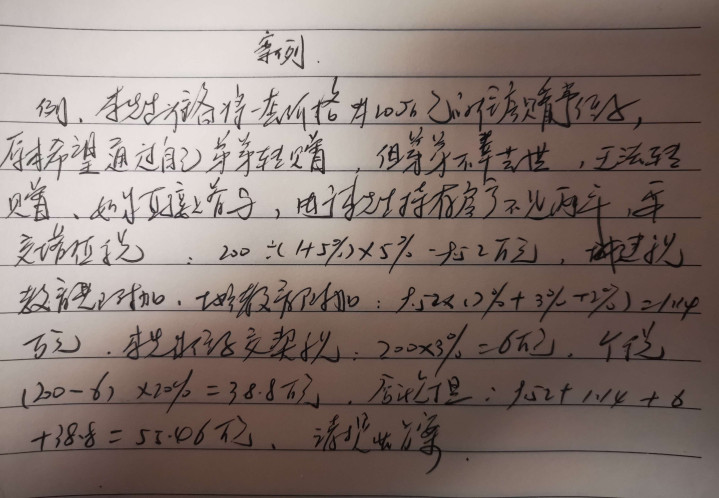 案例.
例、李先生准备将一套价格为200万元的住房赠与侄子,
原本希望通过自己弟弟转赠,但弟弟不幸去世,无法转
赠、如果直接赠与,由于李先生持有房子不足两年,要
交增值税:200÷(1+5%)×5%=9.52万元,城建税
教育费附加、地方教育附加:9.52×(7%+3%+2%)=1.14
万元.李先生侄子交契税:200×3%=6万元.个税
(200-6)×20%=38.8万元.合计:9.52+1.14+6
+38.8=55.46万元、请提出方案.